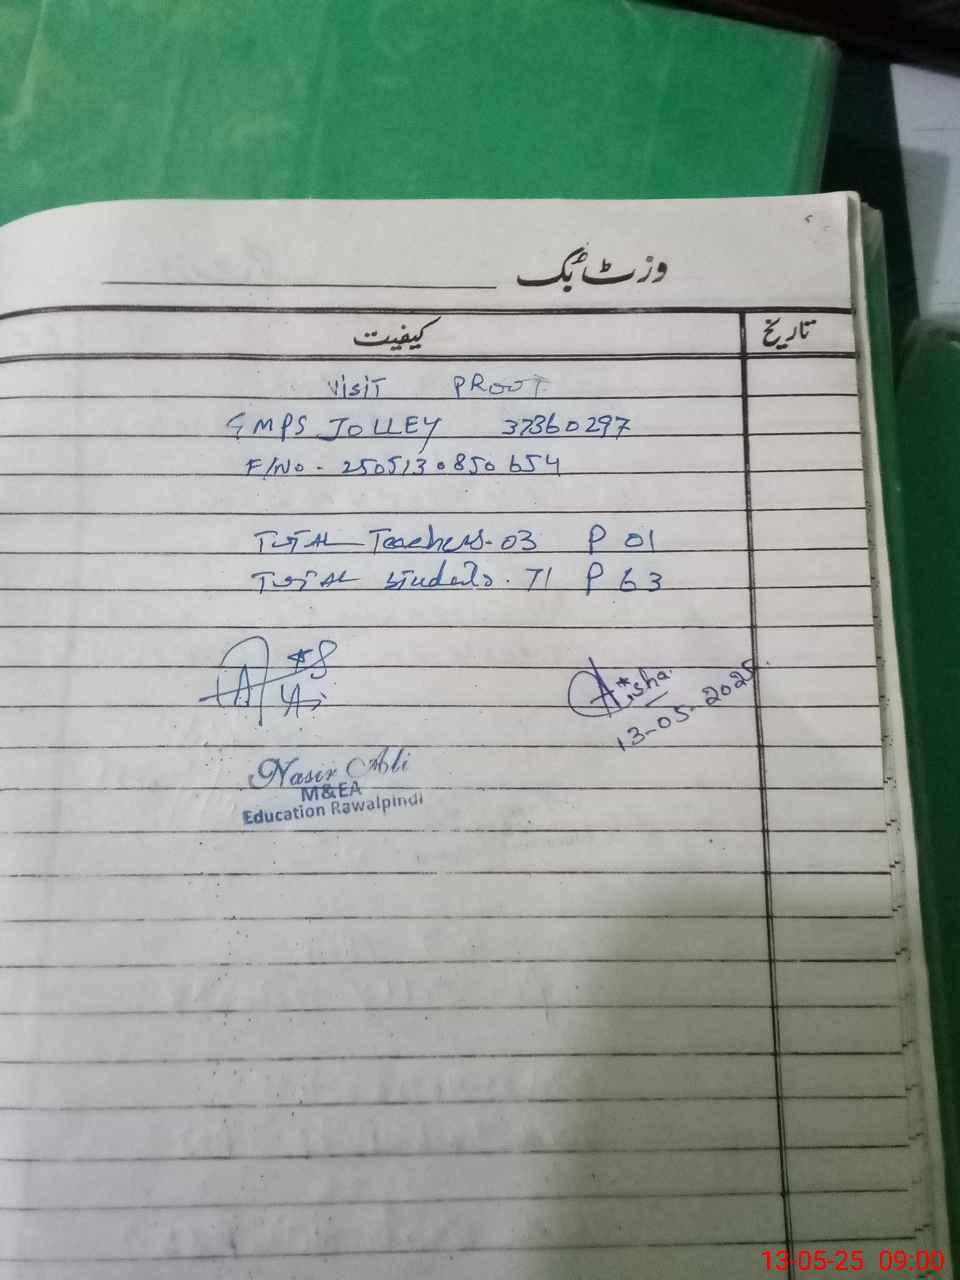 وزٹ بک
کیفیت
تاریخ
Visit PROOF
GMPS JOLLEY 37360297
F/No - 250513 0850654
TOTAL Teachers - 03 P 01
TOTAL Students - 71 P 63
Aisha
13-05-2025
Nasir Ali
M&EA
Education Rawalpindi
13-05-25 09:00